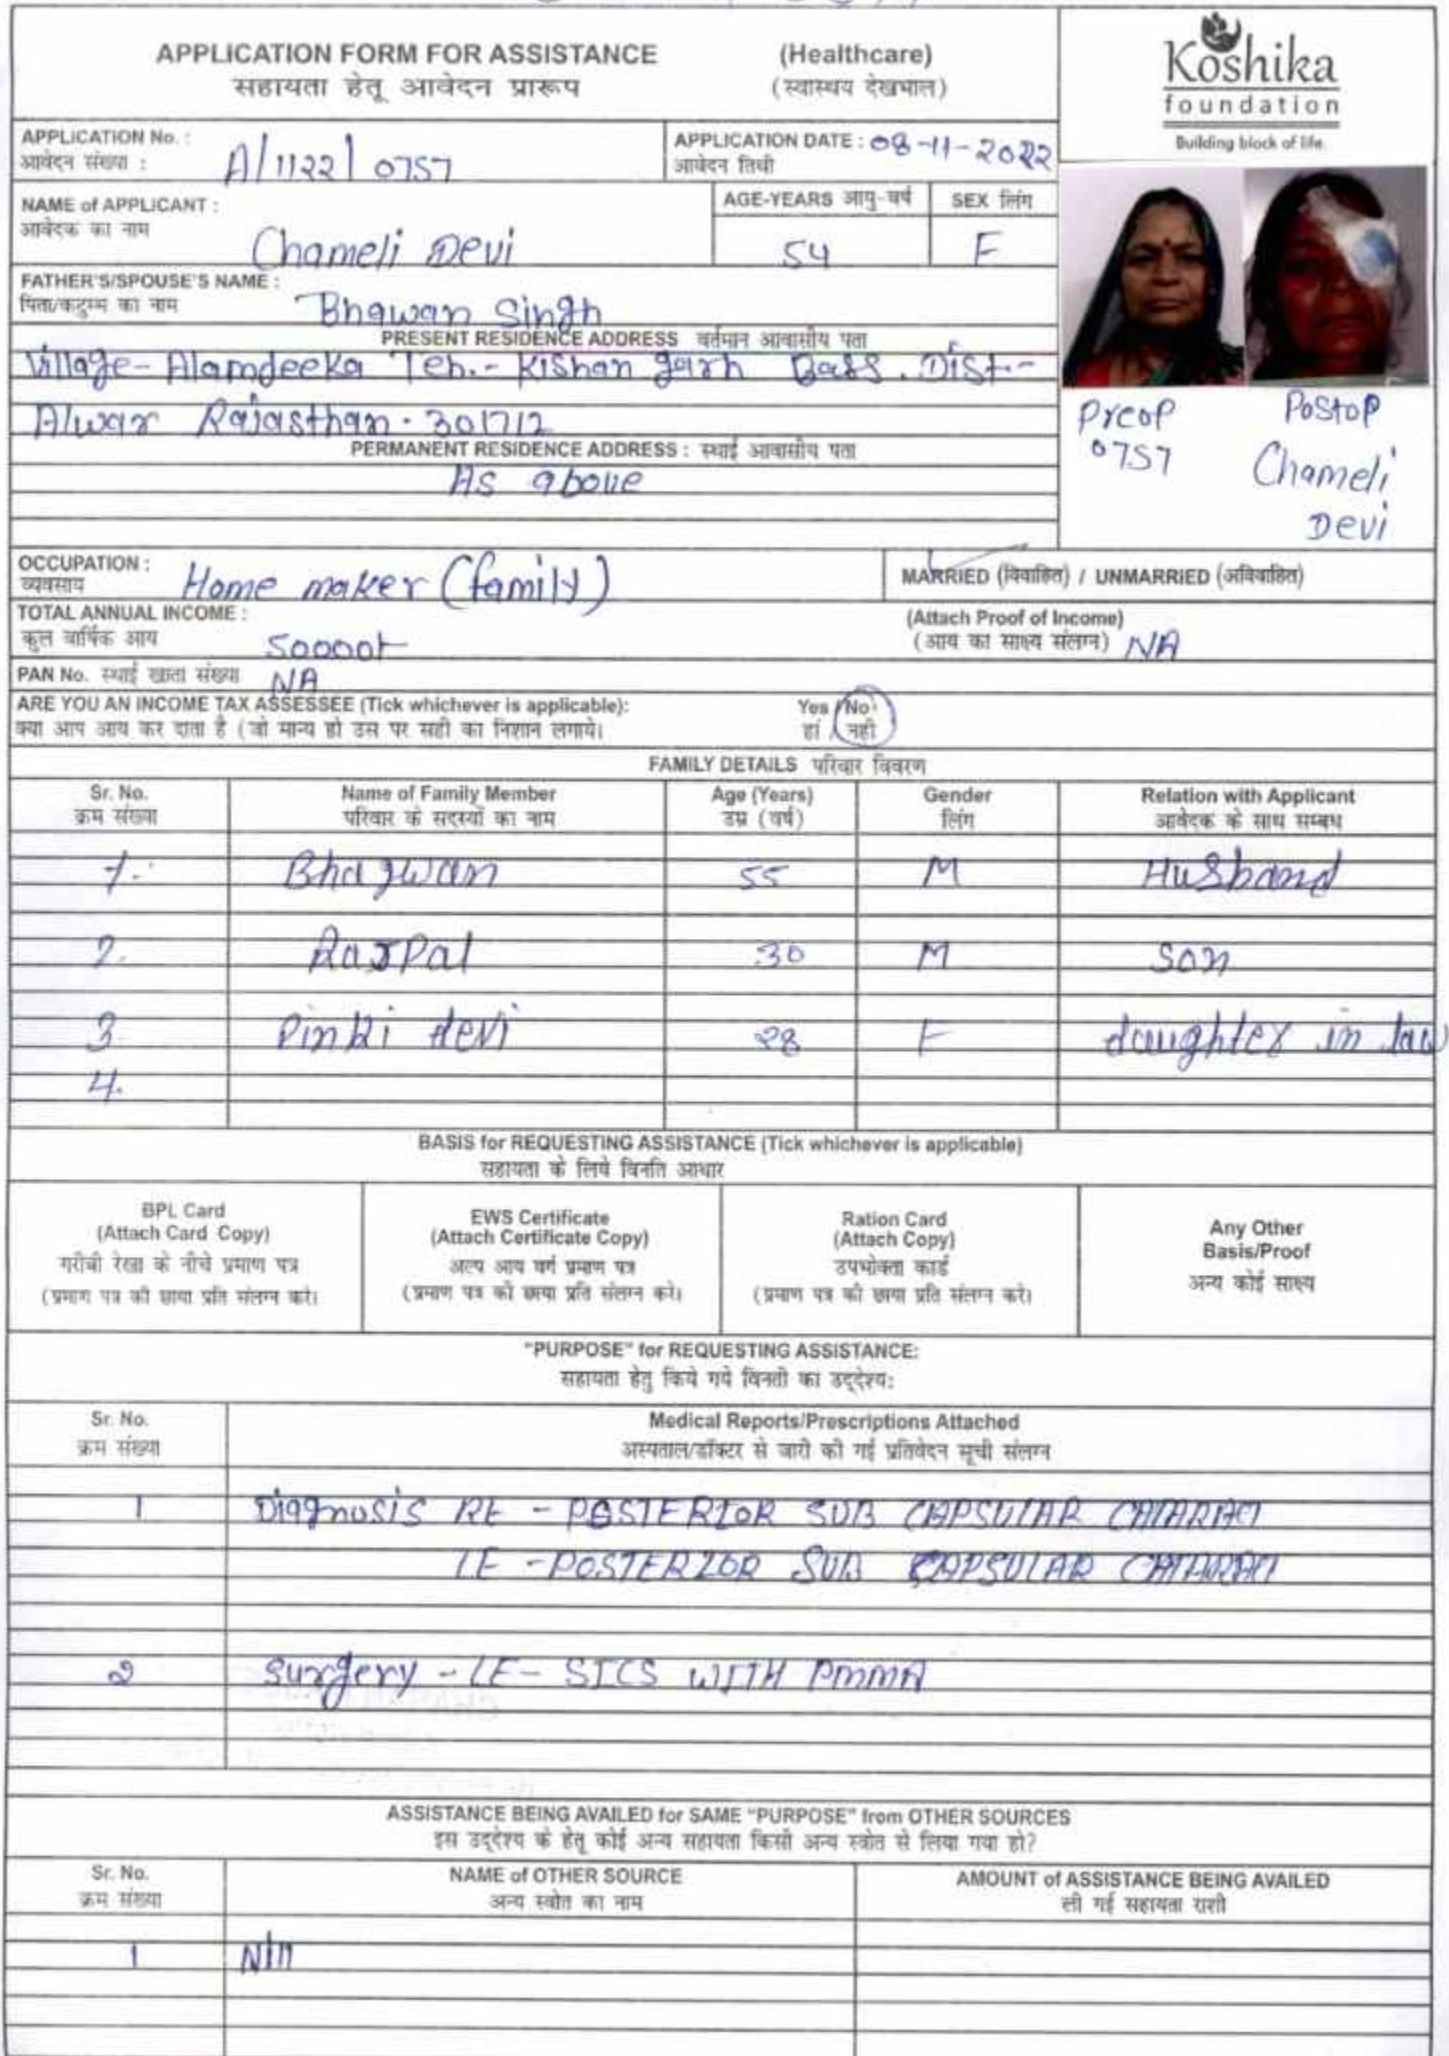 APPLICATION FORM FOR ASSISTANCE (Healthcare)
सहायता हेतू आवेदन प्रारूप (स्वास्थय देखभाल)
Koshika
foundation
Building block of life.
APPLICATION No. : A/1122/0757
आवेदन संख्या :
APPLICATION DATE : 08-11-2022
आवेदन तिथी
NAME of APPLICANT :
आवेदक का नाम
Chameli Devi
AGE-YEARS आयु-वर्ष
54
SEX लिंग
F
FATHER'S/SPOUSE'S NAME :
पिता/कटुम्ब का नाम
Bhawan Singh
PRESENT RESIDENCE ADDRESS वर्तमान आवासीय पता
Village- Alamdeeka Teh.- Kishan garh Bass. Dist-
Alwar Rajasthan. 301712
PERMANENT RESIDENCE ADDRESS : स्थाई आवासीय पता
As above
Preop
0757
Postop
Chameli
Devi
OCCUPATION :
व्यवसाय
Home maker (family)
MARRIED (विवाहित) / UNMARRIED (अविवाहित)
TOTAL ANNUAL INCOME :
कुल वार्षिक आय
(Attach Proof of Income)
(आय का साक्ष्य संलग्न) NA
PAN No. स्थाई खाता संख्या NA
ARE YOU AN INCOME TAX ASSESSEE (Tick whichever is applicable): Yes / No
क्या आप आय कर दाता है (जो मान्य हो उस पर सही का निशान लगाये। हां / नही
FAMILY DETAILS परिवार विवरण
Sr. No. Name of Family Member Age (Years) Gender Relation with Applicant
क्रम संख्या परिवार के सदस्यों का नाम उम्र (वर्ष) लिंग आवेदक के साथ सम्बध
1. Bhagwan 55 M Husband
2. Rajpal 30 M Son
3 Pinki devi 28 F daughter in law
4.
BASIS for REQUESTING ASSISTANCE (Tick whichever is applicable)
सहायता के लिये विनति आधार
BPL Card
(Attach Card Copy)
गरीबी रेखा के नीचे प्रमाण पत्र
(प्रमाण पत्र की छाया प्रति संलग्न करे।
EWS Certificate
(Attach Certificate Copy)
अल्प आय वर्ग प्रमाण पत्र
(प्रमाण पत्र की छाया प्रति संलग्न करे।
Ration Card
(Attach Copy)
उपभोक्ता कार्ड
(प्रमाण पत्र की छाया प्रति संलग्न करे।
Any Other
Basis/Proof
अन्य कोई साक्ष्य
"PURPOSE" for REQUESTING ASSISTANCE:
सहायता हेतु किये गये विनती का उद्देश्य:
Sr. No. Medical Reports/Prescriptions Attached
क्रम संख्या अस्पताल/डॉक्टर से जारी की गई प्रतिवेदन सूची संलग्न
1 Diagnosis RE - POSTERIOR SUB CAPSULAR CATARACT
LE - POSTERIOR SUB CAPSULAR CATARACT
2 Surgery - LE - SICS WITH PMMA
ASSISTANCE BEING AVAILED for SAME "PURPOSE" from OTHER SOURCES
इस उद्देश्य के हेतू कोई अन्य सहायता किसी अन्य स्त्रोत से लिया गया हो?
Sr. No. NAME of OTHER SOURCE AMOUNT of ASSISTANCE BEING AVAILED
क्रम संख्या अन्य स्त्रोत का नाम ली गई सहायता राशी
1